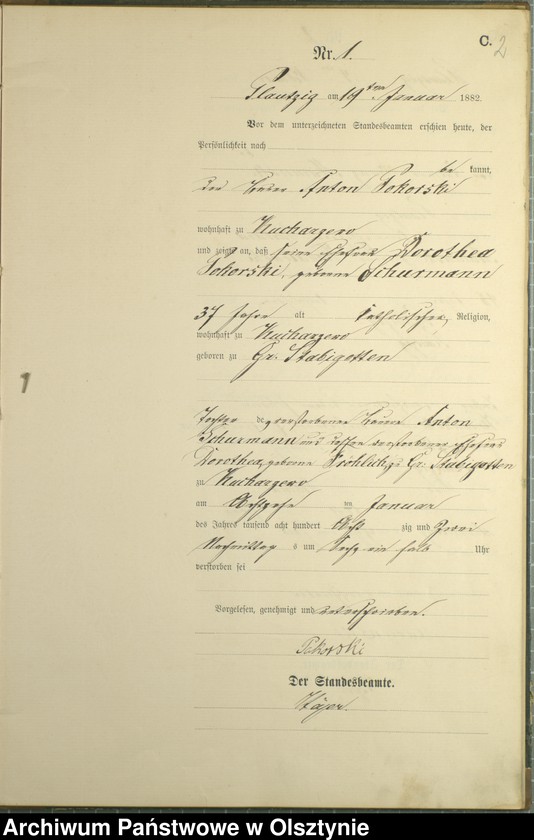 C.
2
Nr. 1.
Plautzig am 19ten Januar 1882.
Vor dem unterzeichneten Standesbeamten erschien heute, der
Persönlichkeit nach
be kannt,
der Anton Pokorski
wohnhaft zu Kuchargero
und zeigte an, daß seine Ehefrau Dorothea
Pokorski, geborene Schurmann
37 Jahre alt katholischer Religion,
wohnhaft zu Kuchargero
geboren zu Gr. Stabigotten
1
Tochter des verstorbenen Anton
Schurmann und dessen verstorbener Ehefrau
Dorothea, geborene Fröhlich, zu Gr. Stabigotten
zu Kuchargero
am Achtzehn ten Januar
des Jahres tausend acht hundert Acht zig und Zwei
Nachmittag s um Sechs ein halb Uhr
verstorben sei
Vorgelesen, genehmigt und unterschrieben.
Pokorski
Der Standesbeamte.
Archiwum Państwowe w Olsztynie